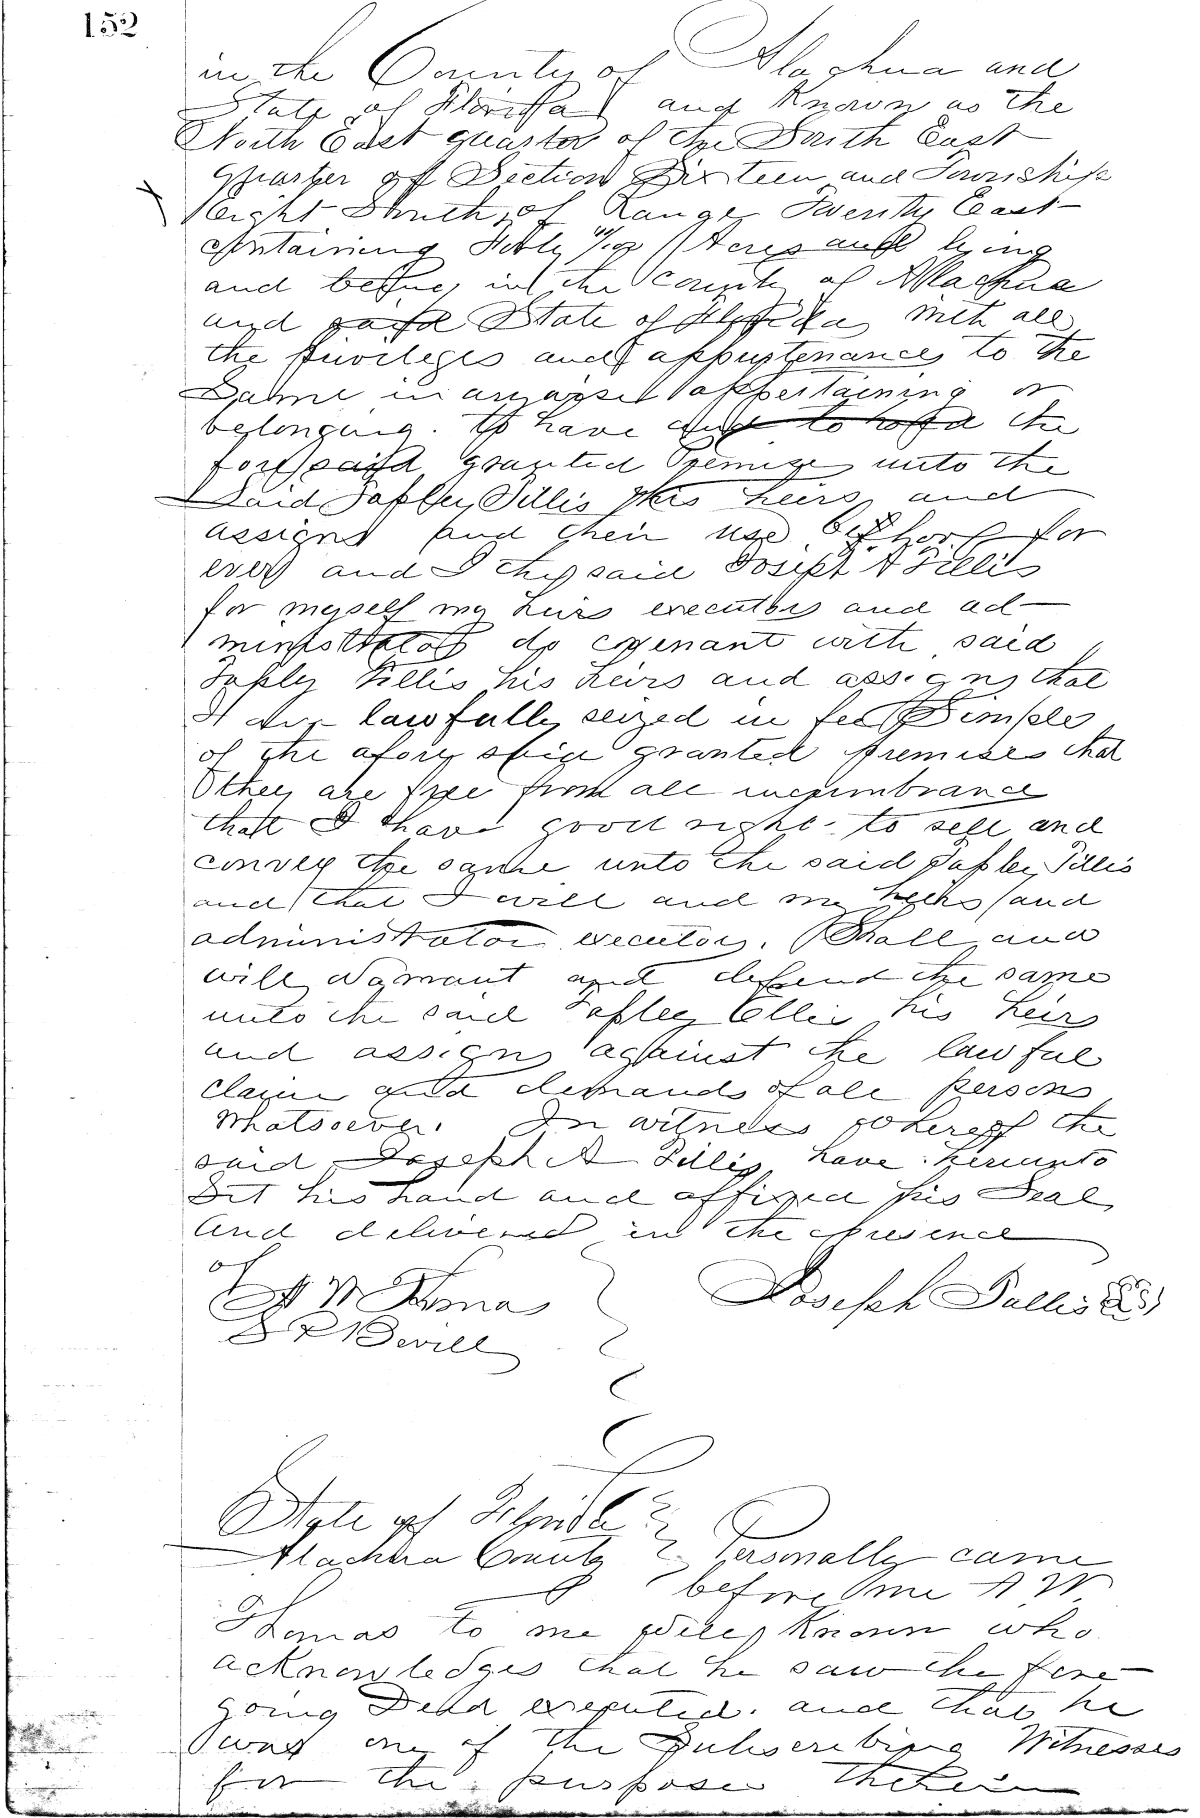 152
in the County of Alachua and
State of Florida and Known as the
North East quarter of the South East
quarter of Section Sixteen and Township
Eight South, of Range Twenty East
containing Forty Acres and lying
and being in the County of Alachua
and said State of Florida with all
the privileges and appurtenances to the
Same in any wise appertaining or
belonging. To have and to hold the
foresaid granted Premises unto the
Said Tapley Tillis his heirs and
assigns and their use behoof for
ever and I the said Joseph A Tillis
for myself my heirs executors and ad-
ministrators do covenant with said
Tapley Tillis his heirs and assigns that
I am lawfully seized in fee Simple
of the afore said granted premises that
they are free from all incumbrance
that I have good right to sell and
convey the same unto the said Tapley Tillis
and that I will and my heirs and
administrator executors. Shall and
will warrant and defend the same
unto the said Tapley Tillis his heirs
and assigns against the lawful
claim and demands of all persons
Whatsoever. In witness whereof the
said Joseph A Tillis have hereunto
Set his hand and affixed his Seal
And delivered in the presence
of
A W Thomas Joseph Tillis
Bevill
State of Florida
Alachua County Personally came
before me A W
Thomas to me well Known who
acknowledges that he saw the fore-
going Deed executed. and that he
was one of the Subscribing Witnesses
for the purposes therein